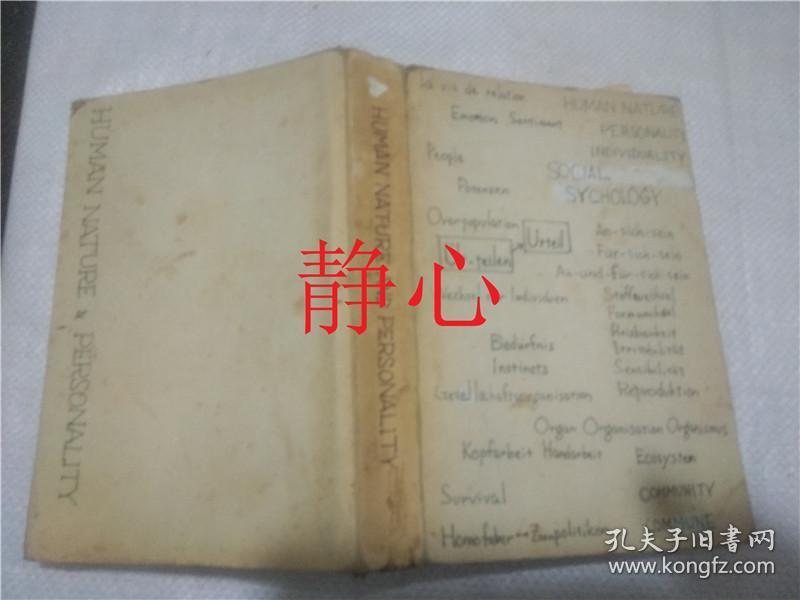 HUMAN NATURE & PERSONALITY
HUMAN NATURE AND PERSONALITY
de relation
HUMAN NATURE
Emotion Sentiment
PERSONALITY
People
INDIVIDUALITY
SOCIAL
Potenzen
SYCHOLOGY
Overpopulation
Urteil
An-sich-sein
Ur-teilen
Für-sich-sein
An-und-für-sich-sein
Individuen
Stoffwechsel
Formwechsel
Bedürfnis
Irritabilität
Instincts
Sensibilität
Gesellschaftsorganisation
Reproduktion
Organ Organisation Organismus
Kopfarbeit Handarbeit
Ecosystem
Survival
COMMUNITY
Homo faber
Zoonpolitikon
COMMUNE
静心
孔夫子旧书网
www.kongfz.com